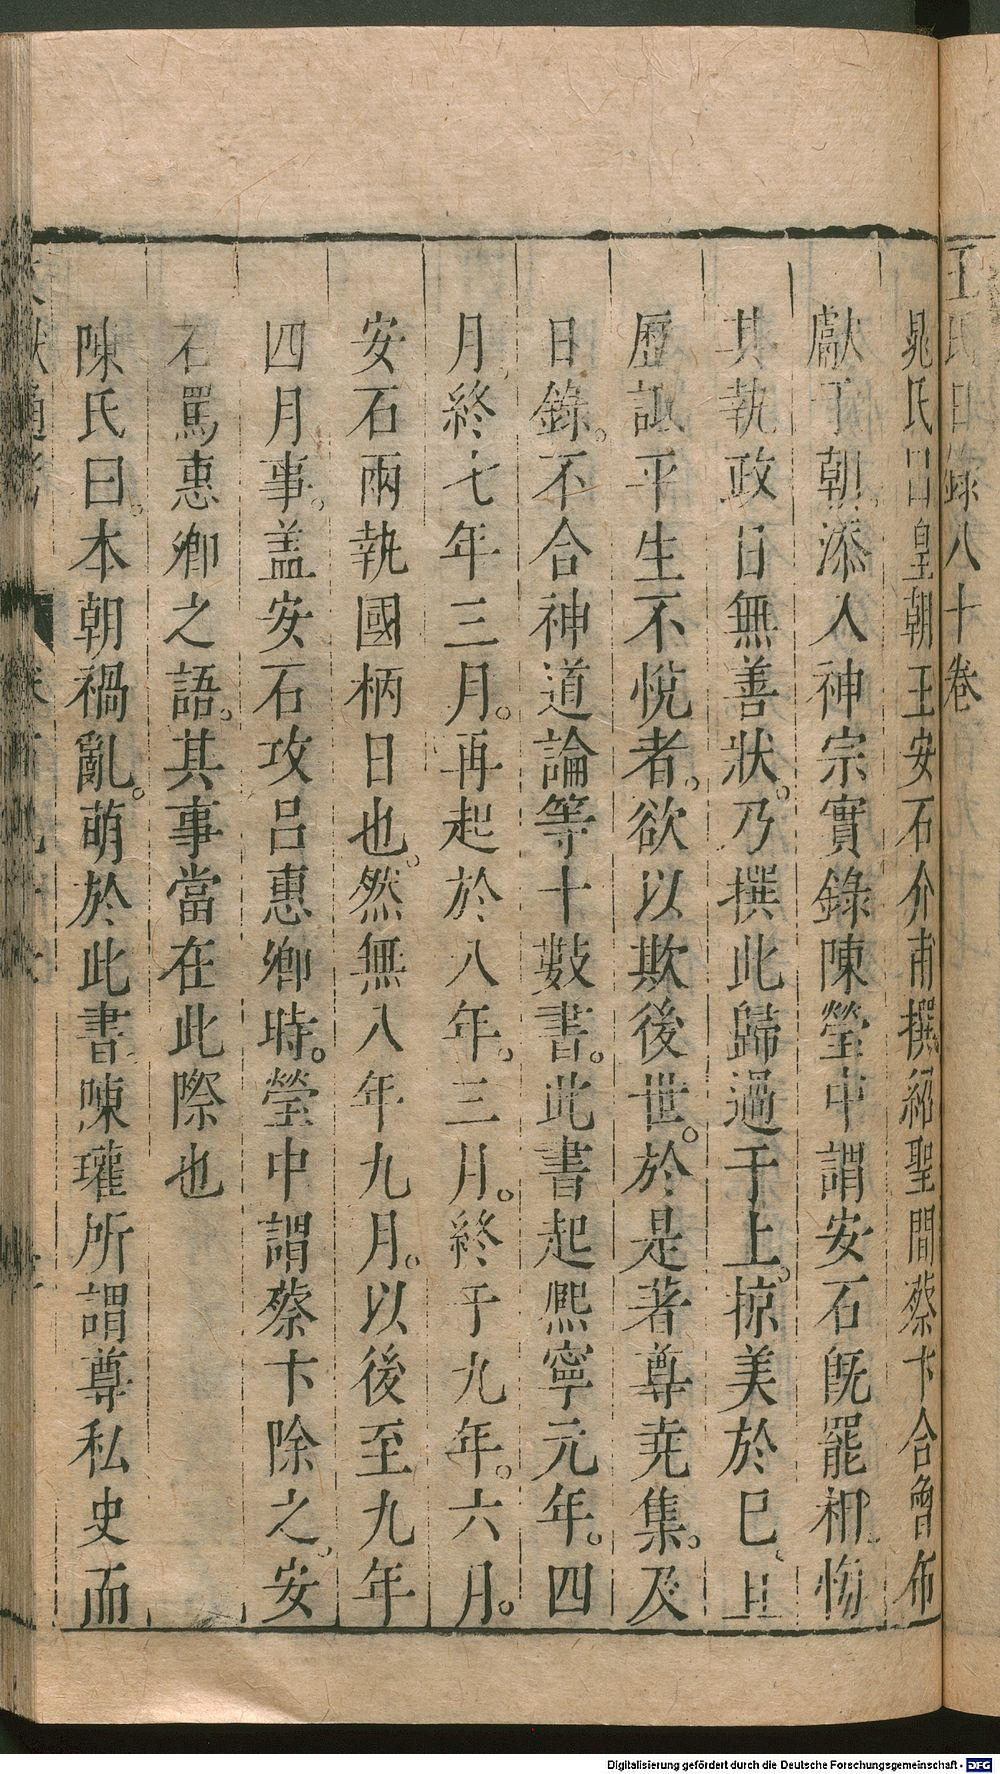 王氏日錄八十卷
晁氏曰皇朝王安石介甫撰紹聖間蔡卞合曾布
獻于朝。添入神宗實錄陳瑩中謂安石旣罷相悔
其執政日無善狀。乃撰此歸過于上。掠美於巳、且
歷詆平生不悅者。欲以欺後世。於是著尊尭集。及
日錄。不合神道論等十數書。此書起熈寧元年。四
月終七年三月。再起於八年。三月。終于九年。六月。
安石兩執國柄日也。然無八年九月。以後至九年
四月事。盖安石攻吕惠卿時。瑩中謂蔡卞除之。安
石罵惠卿之語。其事當在此際也
陳氏曰。本朝禍亂。萌於此書陳瓘所謂尊私史而
Digitalisierung gefördert durch die Deutsche Forschungsgemeinschaft - DFG